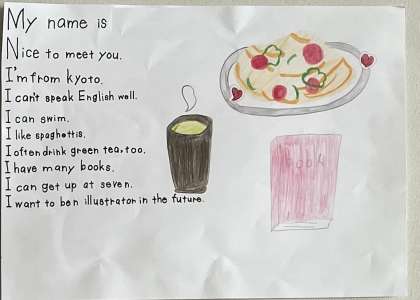 My name is
Nice to meet you.
I'm from kyoto.
I can't speak English well.
I can swim.
I like spaghettis.
I often drink green tea, too.
I have many books.
I can get up at seven.
I want to be n illustrator in the future.
book